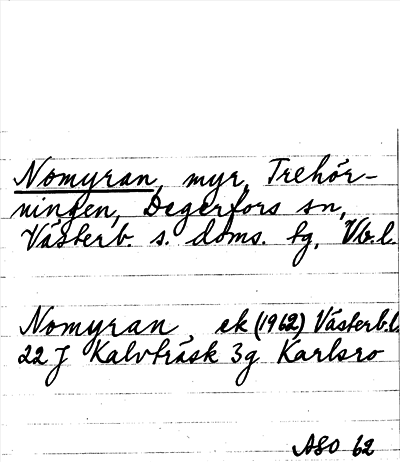 Nomyran, myr, Trehör-
ningen, Degerfors sn,
Västerb. s. doms. tg, Vb.l.
Nomyran, ek (1962) Västerb.l.
22 J Kalvträsk 3g Karlsro
ASO 62